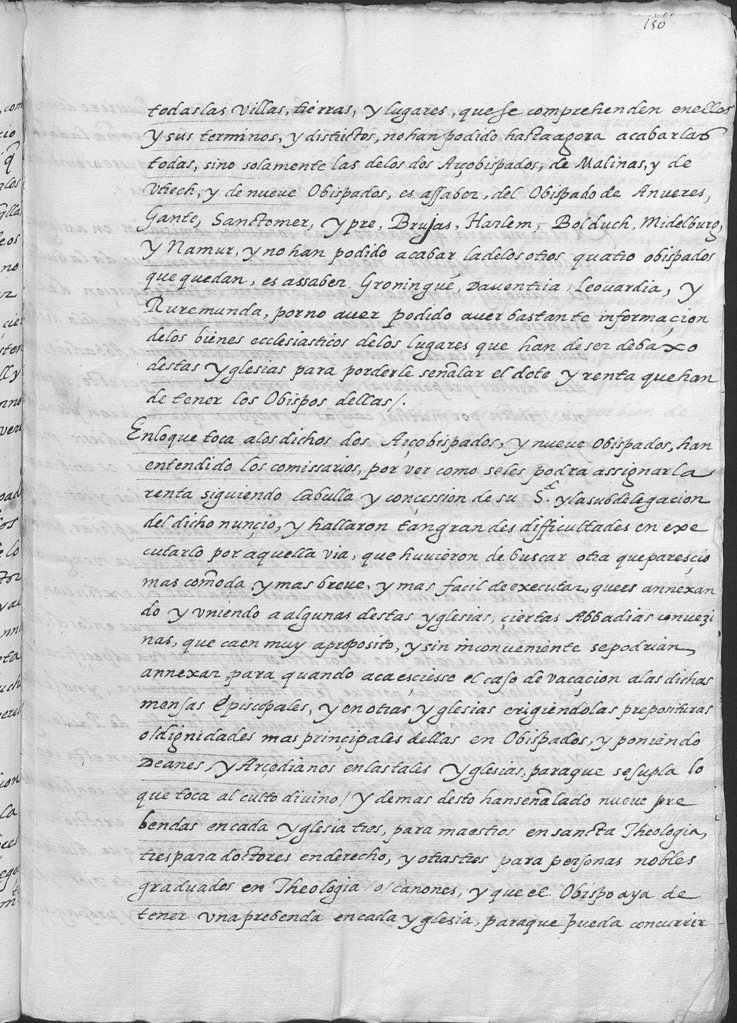 150
todas las villas, tierras, y lugares, que se comprehenden en ellos
y sus terminos, y districtos, no han podido hasta agora acabarlas
todas, sino solamente las de los dos Arçobispados, de Malinas, y de
Vtrech, y de nueve Obispados, es assaber, del Obispado de Anveres,
Gante, Sanctomer, Ypre, Brujas, Harlem, Bolduch, Midelburg,
y Namur, y no han podido acabar la de los otros quatro obispados
que quedan, es assaber, Groningue, Daventria, Leovardia, y
Ruremunda, por no aver podido aver bastante informaçion
de los bienes ecclesiasticos de los lugares que han de ser debaxo
destas yglesias para porderle señalar el dote y renta que han
de tener los Obispos dellas /.
En lo que toca a los dichos dos Arçobispados, y nueve Obispados, han
entendido los comissarios, por ver como se les podra assignar la
renta siguiendo la bulla y concession de su S.d y la subdelegacion
del dicho nunçio, y hallaron tan grandes difficultades en exe
cutarlo por aquella via, que huvieron de buscar otra que paresçio
mas comoda, y mas breve, y mas facil de executar, que es annexan
do y vniendo a algunas destas yglesias, çiertas Abbadias conveçi
nas, que caen muy a proposito, y sin inconveniente se podrian
annexar para quando acaesciesse el caso de vacaçion a las dichas
mensas Episcopales, y en otras yglesias erigiendolas preposituras
o/ dignidades mas prinçipales dellas en Obispados, y poniendo
Deanes, y Arçedianos en las tales yglesias, para que se supla lo
que toca al culto divino / y demas desto han señalado nueve pre
bendas en cada yglesia tres, para maestros en sancta Theologia,
tres para doctores en derecho, y otras tres para personas nobles
graduados en Theologia /o/ canones, y que el Obispo aya de
tener vna prebenda en cada yglesia, para que pueda concurrir